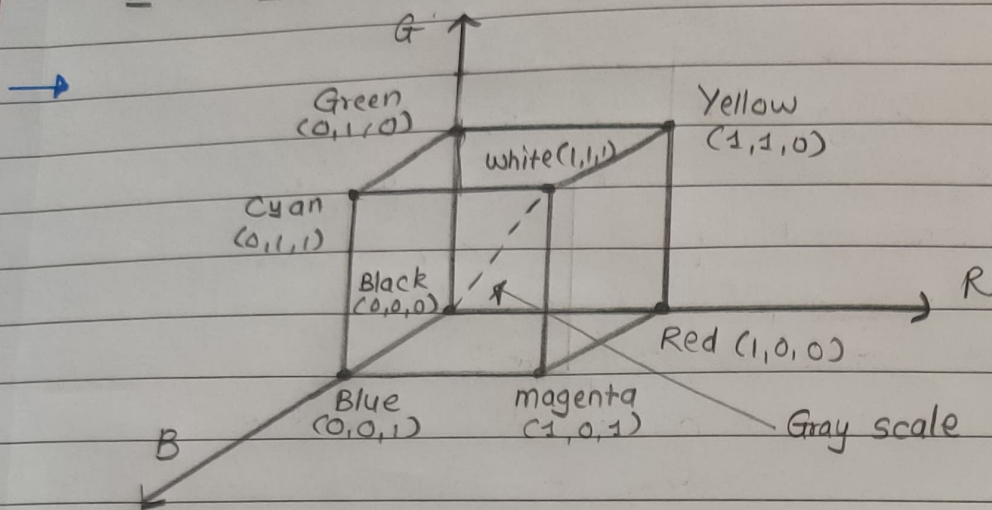 G
Green
(0,1,0)
Yellow
(1,1,0)
White(1,1,1)
Cyan
(0,1,1)
Black
(0,0,0)
R
Red (1,0,0)
Blue
(0,0,1)
magenta
(1,0,1)
Gray scale
B